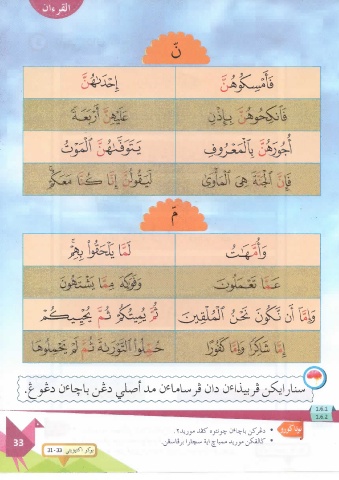 القرءان
نّ
فَأَمْسِكُوهُنَّ إِحْدَىٰهُنَّ
فَٱنكِحُوهُنَّ بِإِذْنِ عَلَيْهِنَّ أَرْبَعَةً
أُجُورَهُنَّ بِٱلْمَعْرُوفِ يَتَوَفَّىٰهُنَّ ٱلْمَوْتُ
فَإِنَّ ٱلْجَنَّةَ هِىَ ٱلْمَأْوَىٰ لَيَقُولُنَّ إِنَّا كُنَّا مَعَكُمْ
مّ
وَأُمَّهَـٰتُ لَمَّا يَلْحَقُوا۟ بِهِمْ
عَمَّا تَعْمَلُونَ وَفَوَٰكِهَ مِمَّا يَشْتَهُونَ
وَإِمَّآ أَن نَّكُونَ نَحْنُ ٱلْمُلْقِينَ ثُمَّ يُمِيتُكُمْ ثُمَّ يُحْيِيكُمْ
إِمَّا شَاكِرًا وَإِمَّا كَفُورًا حُمِّلُوا۟ ٱلتَّوْرَىٰةَ ثُمَّ لَمْ يَحْمِلُوهَا
سنارايكن ڤربيذاءن دان ڤرساماءن مد اصلي دڠن باچاءن دڠوڠ.
1.6.1
1.6.2
نوتا ݢورو
• دڠركن باچاءن چونتوه كڤد موريد٢.
• ݢالقكن موريد ممباچ اية سچارا برڤاسڠن.
بوكو اكتيۏيتي 33-31
33